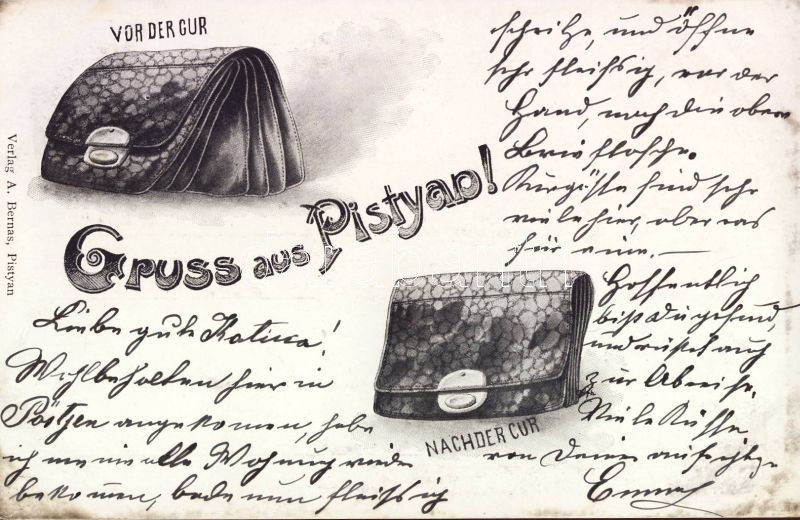 VOR DER CUR
Verlag A. Bernas, Pistyan
Gruss aus Pistyan!
NACH DER CUR
Liebe gute Katicza!
Wohlbehalten hier in
angekommen, habe
ich meine alle Wohnung wieder
bekommen, bade nun fleissig
und öffne
sehr fleissig, vor der
Hand, noch die obere
Brieftasche.
Kurgäste sind sehr
viele hier, aber was
für eine. —
Hoffentlich
bist Du gesund,
und auch
zur Abreise.
Viele Küsse
von Deiner aufrichtige